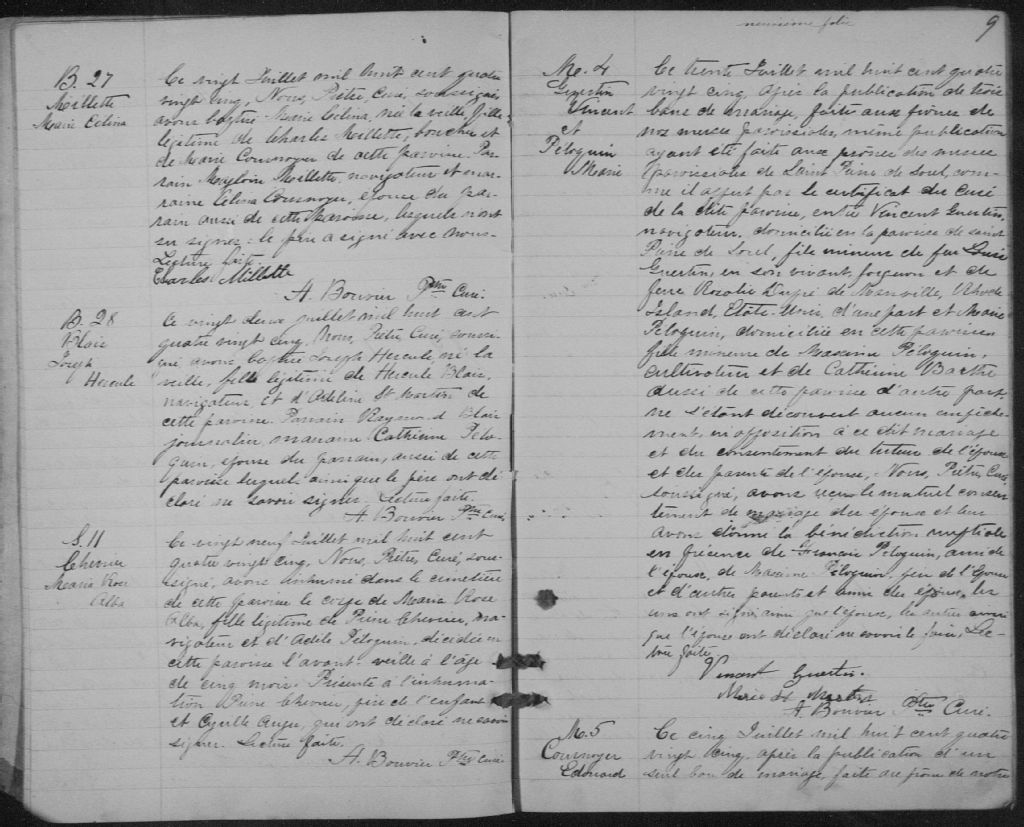 B. 27
Millette
Marie Celina
Ce vingt Juillet mil huit cent quatre
vingt cinq, Nous, Prêtre, Curé, soussigné,
avons baptisé Marie Celina, née la veille, fille
légitime de Charles Millette, boucher et
de Marie Cournoyer de cette paroisse. Par-
rain Magloire Millette, navigateur et mar-
raine Celina Cournoyer, épouse du par-
rain aussi de cette paroisse, lesquels n'ont
su signer: le père a signé avec nous.
Lecture faite.
Charles Millette
A. Bouvier Ptre Curé.
B. 28
Blair
Joseph
Hercule
Ce vingt deux juillet mil huit cent
quatre vingt cinq, Nous, Prêtre, Curé, soussi-
gné avons baptisé Joseph Hercule né la
veille, fils légitime de Hercule Blair,
navigateur, et d'Adeline St Martin de
cette paroisse. Parrain Raymond Blair
journalier, marraine Catherine Pélo-
quin, épouse du parrain, aussi de cette
paroisse lesquels ainsi que le père ont dé-
claré ne savoir signer. Lecture faite.
A. Bouvier Ptre Curé
S. 11
Chevrier
Maria Rose
Alba
Ce vingt neuf Juillet mil huit cent
quatre vingt cinq, Nous, Prêtre, Curé, sous-
signé, avons inhumé dans le cimetière
de cette paroisse le corps de Maria Rose
Alba, fille légitime de Pierre Chevrier, na-
vigateur et d'Adèle Péloquin, décédée en
cette paroisse l'avant-veille à l'âge
de cinq mois. Présents à l'inhuma-
tion Pierre Chevrier, père de l'enfant
et Cyrille, qui ont déclaré ne savoir
signer. Lecture faite.
A. Bouvier Ptre Curé
neuvième folio
9
M. 4
Guertin
Vincent
et
Péloquin
Marie
Ce trente Juillet mil huit cent quatre
vingt cinq, après la publication de trois
bans de mariage, faite aux prônes de
nos messes paroissiales, même publication
ayant été faite aux prônes des messes
paroissiales de Saint Pierre de Sorel, com-
me il appert par le certificat du Curé
de la dite paroisse, entre Vincent Guertin,
navigateur, domicilié en la paroisse de Saint
Pierre de Sorel, fils mineur de feu
Guertin, en son vivant, forgeron et de
feue Rosalie Dupré de Manville, Rhode
Island, Etats-Unis, d'une part et Marie
Péloquin, domiciliée en cette paroisse
fille mineure de Maxime Péloquin,
cultivateur et de Catherine Barthe
aussi de cette paroisse d'autre part,
ne s'étant découvert aucun empêche-
ment, ni opposition à ce dit mariage
et du consentement du tuteur de l'époux
et des parents de l'épouse, Nous, Prêtre, Curé,
soussigné, avons reçu le mutuel consen-
tement de mariage des époux et leur
avons donné la bénédiction nuptiale
en présence de François Péloquin, ami de
l'époux, de Maxime Péloquin, père de l'épouse
et d'autres parents et amis des époux, les
uns ont signé ainsi que l'époux, les autres ainsi
que l'épouse ont déclaré ne savoir le faire. Lec-
ture faite.
Vincent Guertin.
A. Bouvier Ptre Curé.
M. 5
Cournoyer
Edouard
Ce cinq Juillet mil huit cent quatre
vingt cinq, après la publication d'un
seul ban de mariage, faite au prône de notre